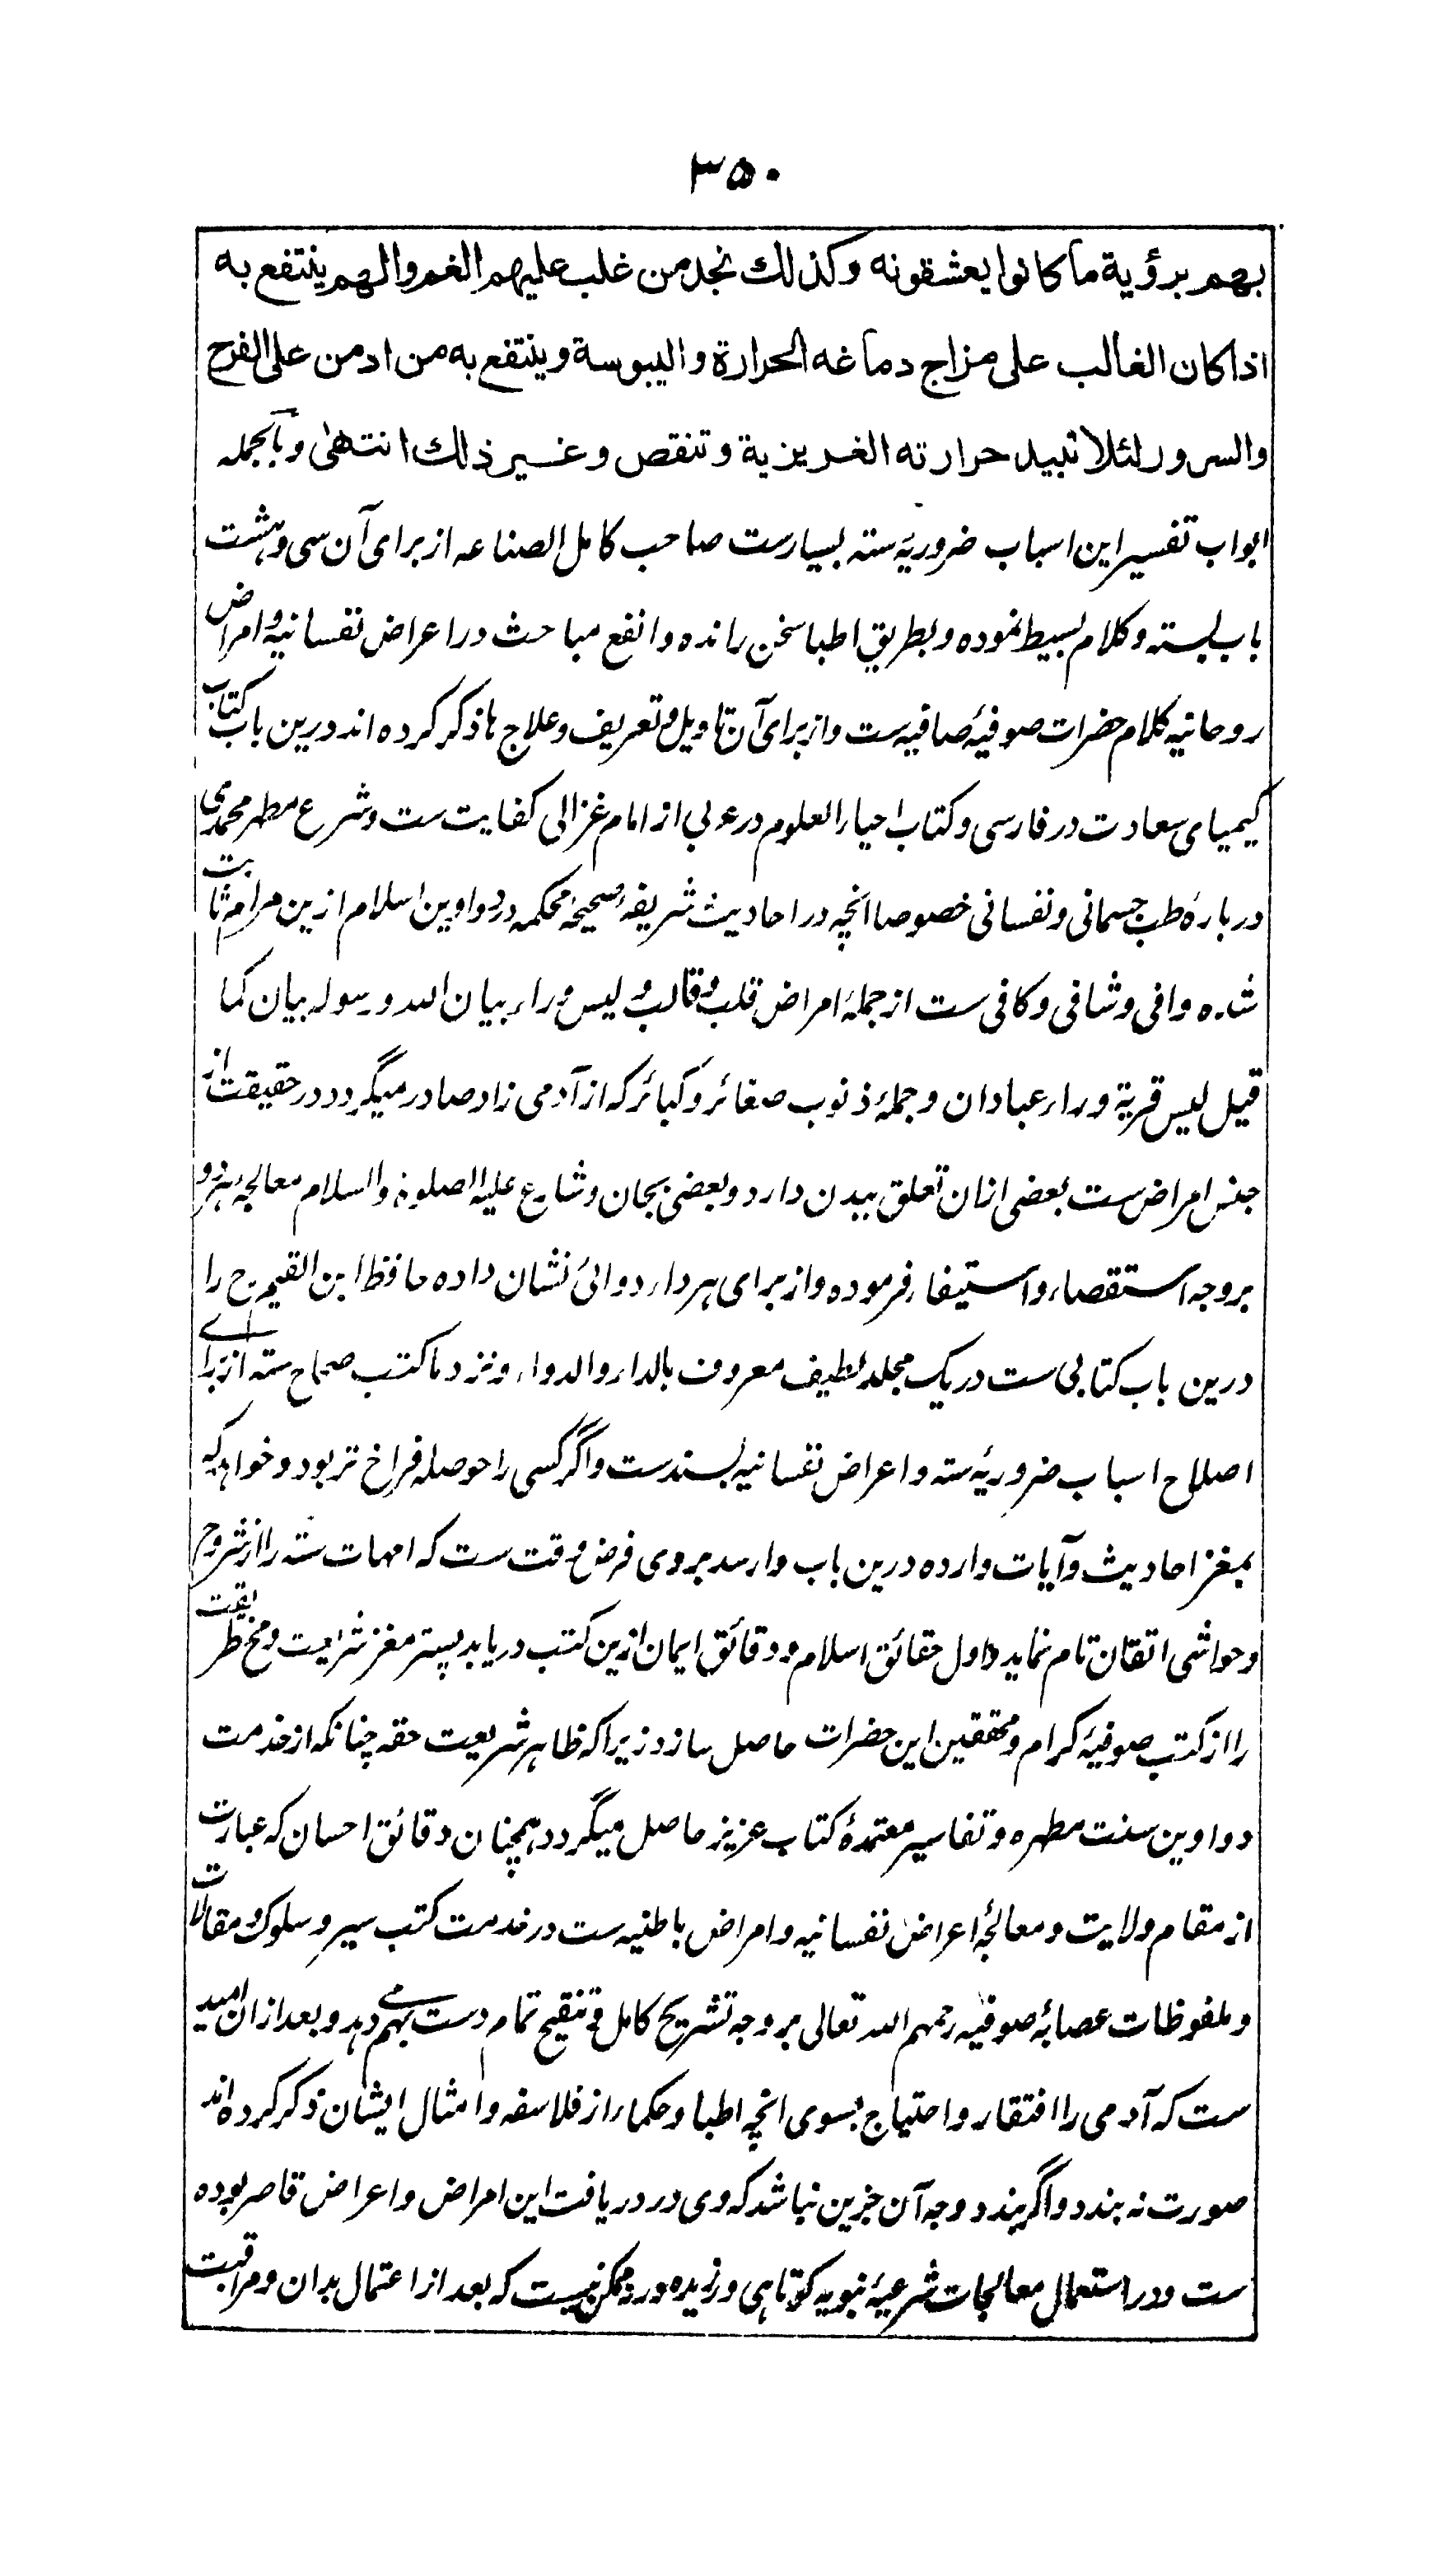 ۳۵۰
بهم برؤیة ما کانوا یعشقونه وکذلك نجد من غلب علیهم الغم والهم ینتفع به
اذا کان الغالب علی مزاج دماغه الحرارة والیبوسة وینتفع به من ادمن علی الفرح
والسرور لئلا تبید حرارته الغریزیة وتنقص وغیر ذلك انتهی وبالجمله
ابواب تفسیر این اسباب ضروریۂ سته بسیارست صاحب کامل الصناعه از برای آن سی وهشت
باب بسته وکلام بسیط نموده وبطریق اطبا سخن رانده وانفع مباحث در اعراض نفسانیه وامراض
روحانیه کلام حضرات صوفیۂ صافیه ست واز برای آن تاویل وتعریف وعلاج ها ذکر کرده اند درین باب کتاب
کیمیای سعادت در فارسی وکتاب احیاء العلوم در عربی از امام غزالی کفایت ست وشرع مطهر محمدی
دربارۂ طب جسمانی ونفسانی خصوصا انچه در احادیث شریفۂ صحیحۂ محکمه در دواوین اسلام ازین مرام ثابت
شده وافی وشافی وکافی ست از جملۂ امراض قلب وقالب ولیس وراء بیان الله ورسوله بیان کما
قیل لیس قریة وراء عبادان وجملۂ ذنوب صغائر وکبائر که از آدمی زاد صادر میگردد در حقیقت از
جنس امراض ست بعضی ازان تعلق ببدن دارد وبعضی بجان وشارع علیه الصلوة والسلام معالجۂ هر دو
بروجه استقصاء واستیفاء فرموده واز برای هر داء دوائی نشان داده حافظ ابن القیم رح را
درین باب کتابی ست در یک مجلد لطیف معروف بالداء والدواء ونزد ما کتب صحاح سته از برای
اصلاح اسباب ضروریۂ سته واعراض نفسانیه بسندست واگر کسی را حوصله فراخ تر بود وخواهد که
بمغز احادیث وآیات وارده درین باب وارسد بروی فرض وقت ست که امهات سته را از شروح
وحواشی اتقان تام نماید واول حقائق اسلام ودقائق ایمان ازین کتب دریابد پستر مغز شریعت ومخ طریقت
را از کتب صوفیۂ کرام ومحققین این حضرات حاصل سازد زیرا که ظاهر شریعت حقه چنانکه از خدمت
دواوین سنت مطهره وتفاسیر معتمدۂ کتاب عزیز حاصل میگردد همچنان دقائق احسان که عبارت
از مقام ولایت ومعالجۂ اعراض نفسانیه وامراض باطنیه ست در خدمت کتب سیر وسلوک ومقالات
وملفوظات عصابۂ صوفیه رحمهم الله تعالی بروجه تشریح کامل وتنقیح تمام دست بهم می دهد وبعد ازان امید
ست که آدمی را افتقار واحتیاج بسوی انچه اطبا وحکماء از فلاسفه وامثال ایشان ذکر کرده اند
صورت نه بندد واگر بندد وجه آن جزین نباشد که وی در دریافت این امراض واعراض قاصر بوده
ست ودر استعمال معالجات شرعیۂ نبویه کوتاهی ورزیده ورنه ممکن نیست که بعد از اعتمال بدان ومراقبت